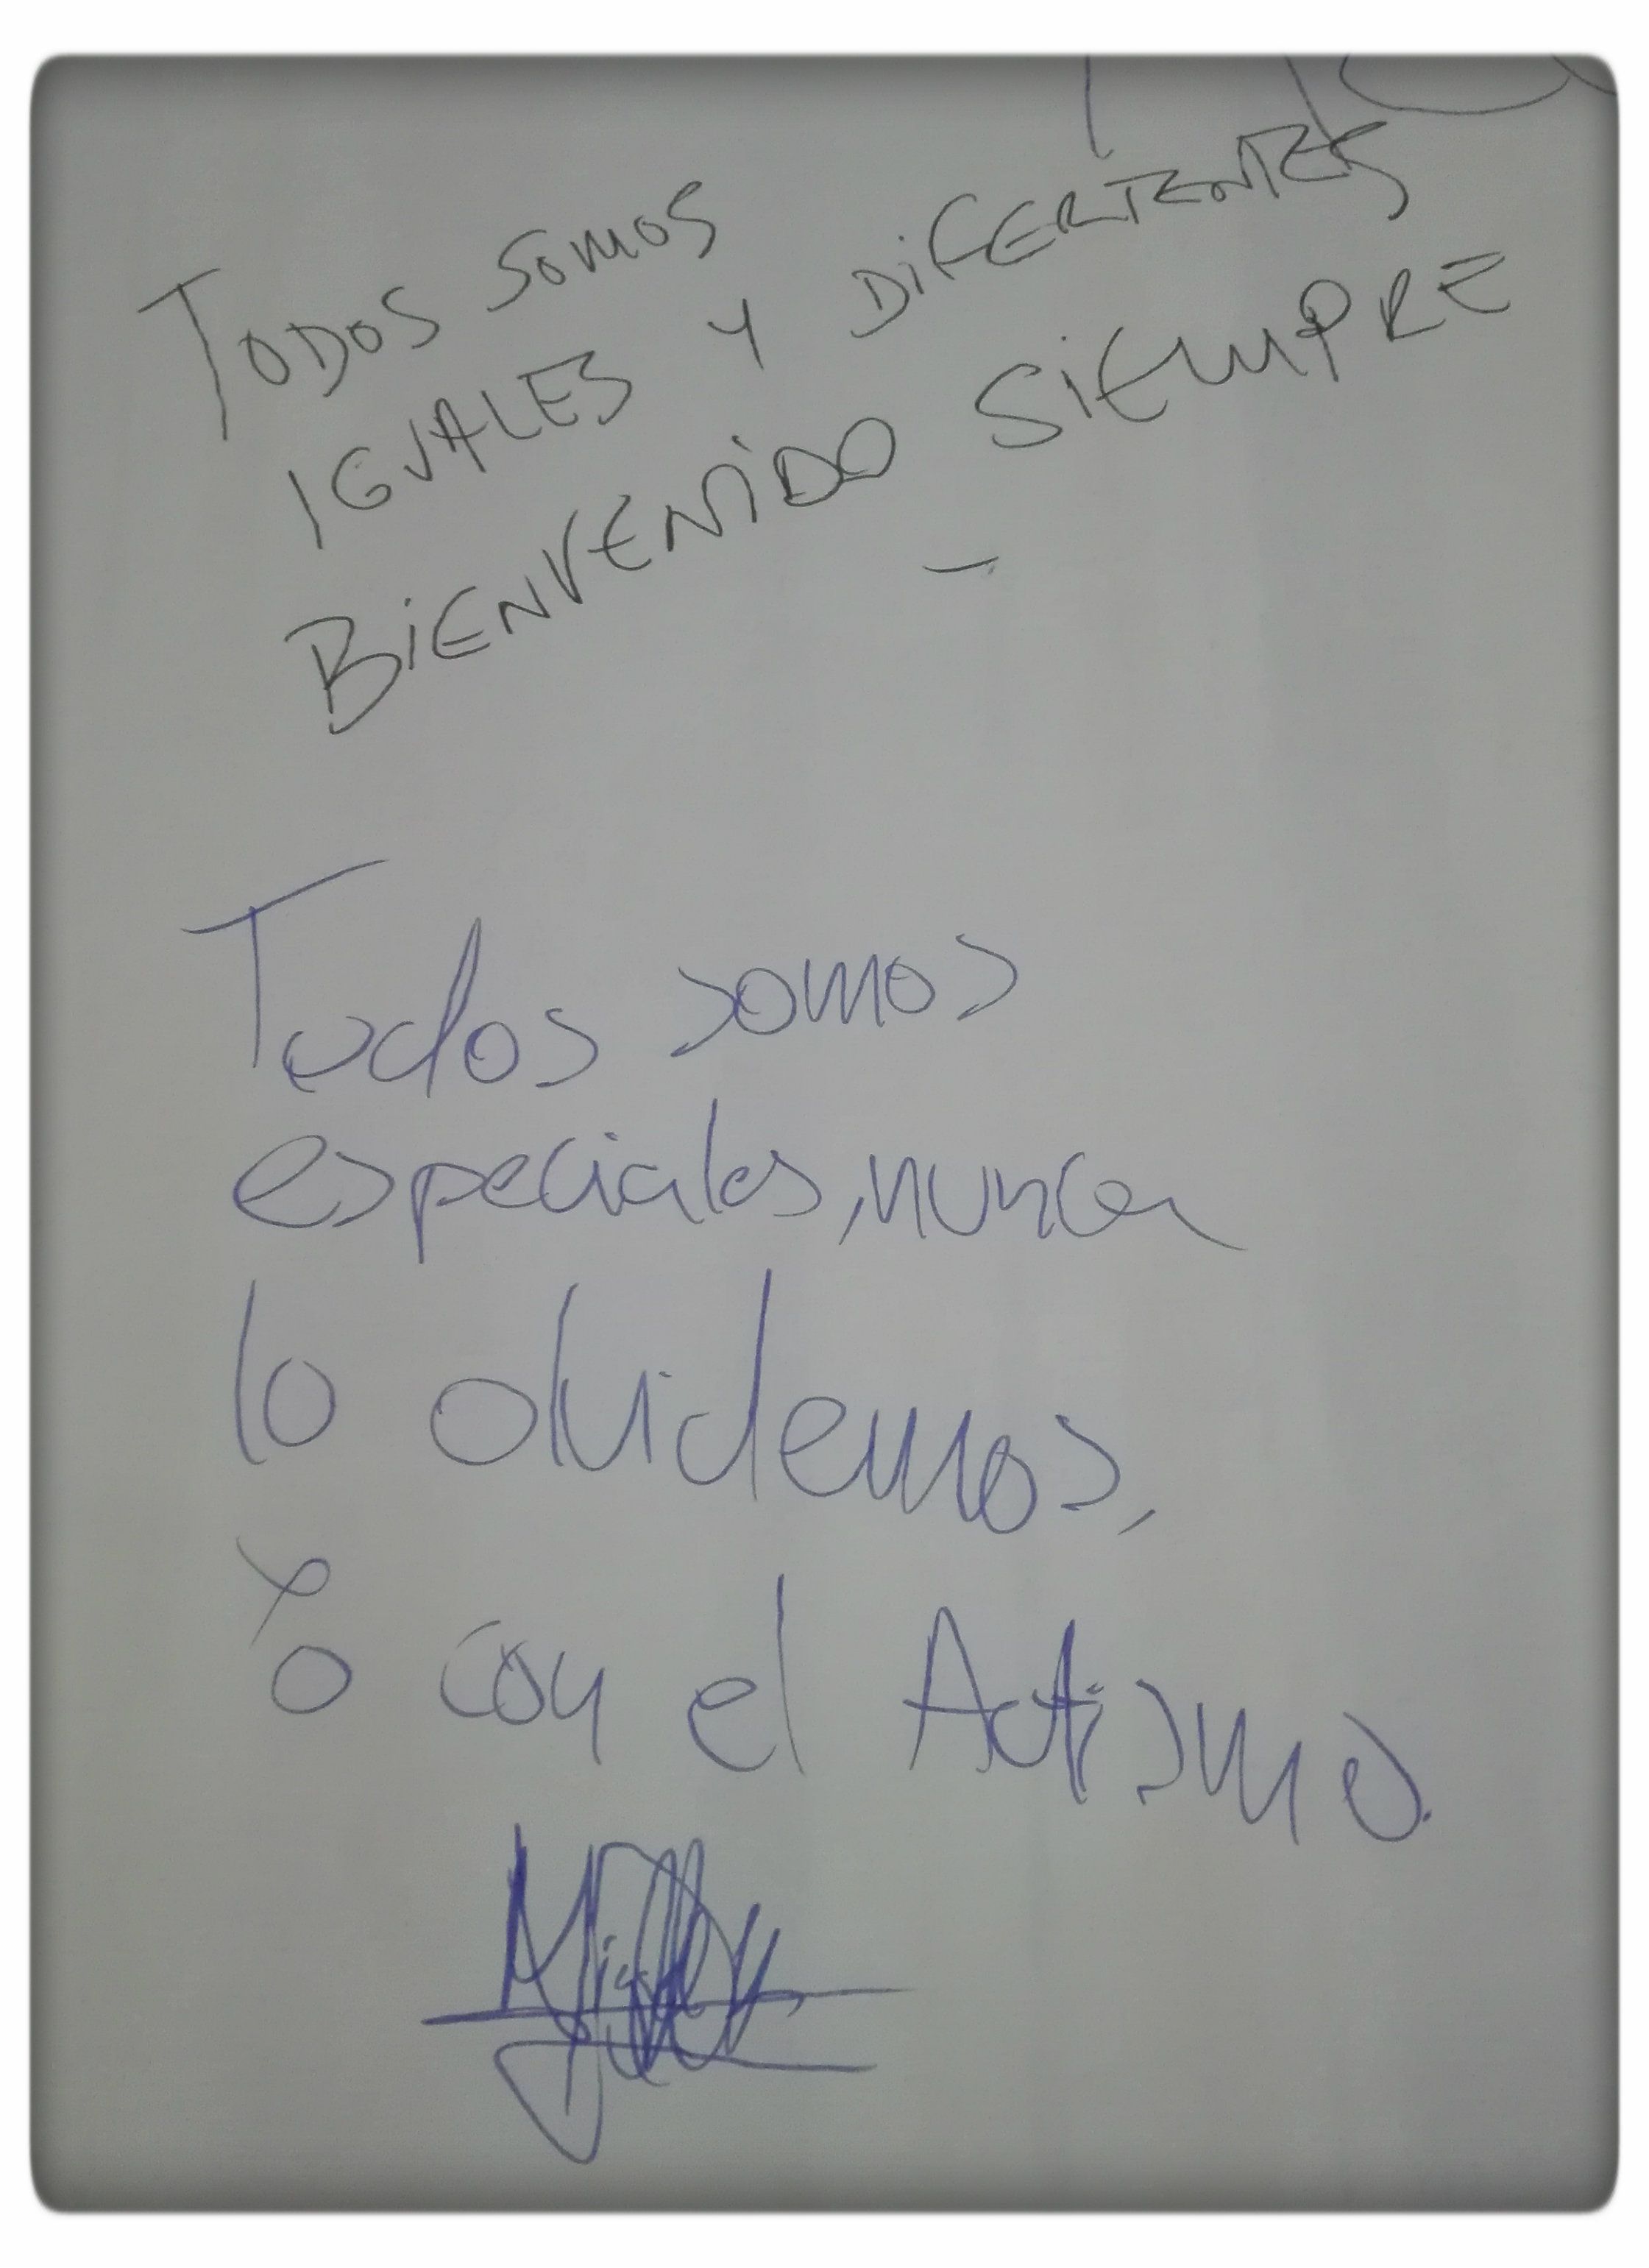 TODOS SOMOS
IGUALES Y DIFERENTES
BIENVENIDO SIEMPRE
Todos somos
especiales, nunca
lo olvidemos,
Yo con el Autismo.